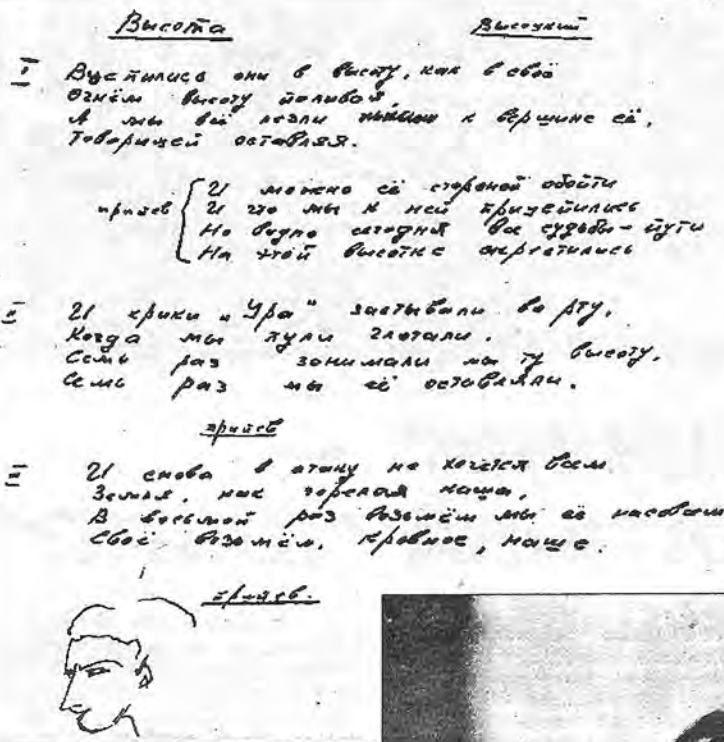 Высота Высоцкий
I Вцепились они в высоту, как в своё
Огнём высоту поливая,
А мы всё лезли к вершине её,
Товарищей оставляя.
припев И можно её стороной обойти
И что мы к ней прицепились
Но видно сегодня все судьбы-пути
На этой высотке скрестились
II И крики "Ура" застывали во рту,
Когда мы пули глотали.
Семь раз занимали мы ту высоту,
Семь раз мы её оставляли.
припев
III И снова в атаку не хочется всем
Земля, как горелая каша,
В восьмой раз возьмём мы её насовсем
Своё возьмём, кровное, наше.
припев.